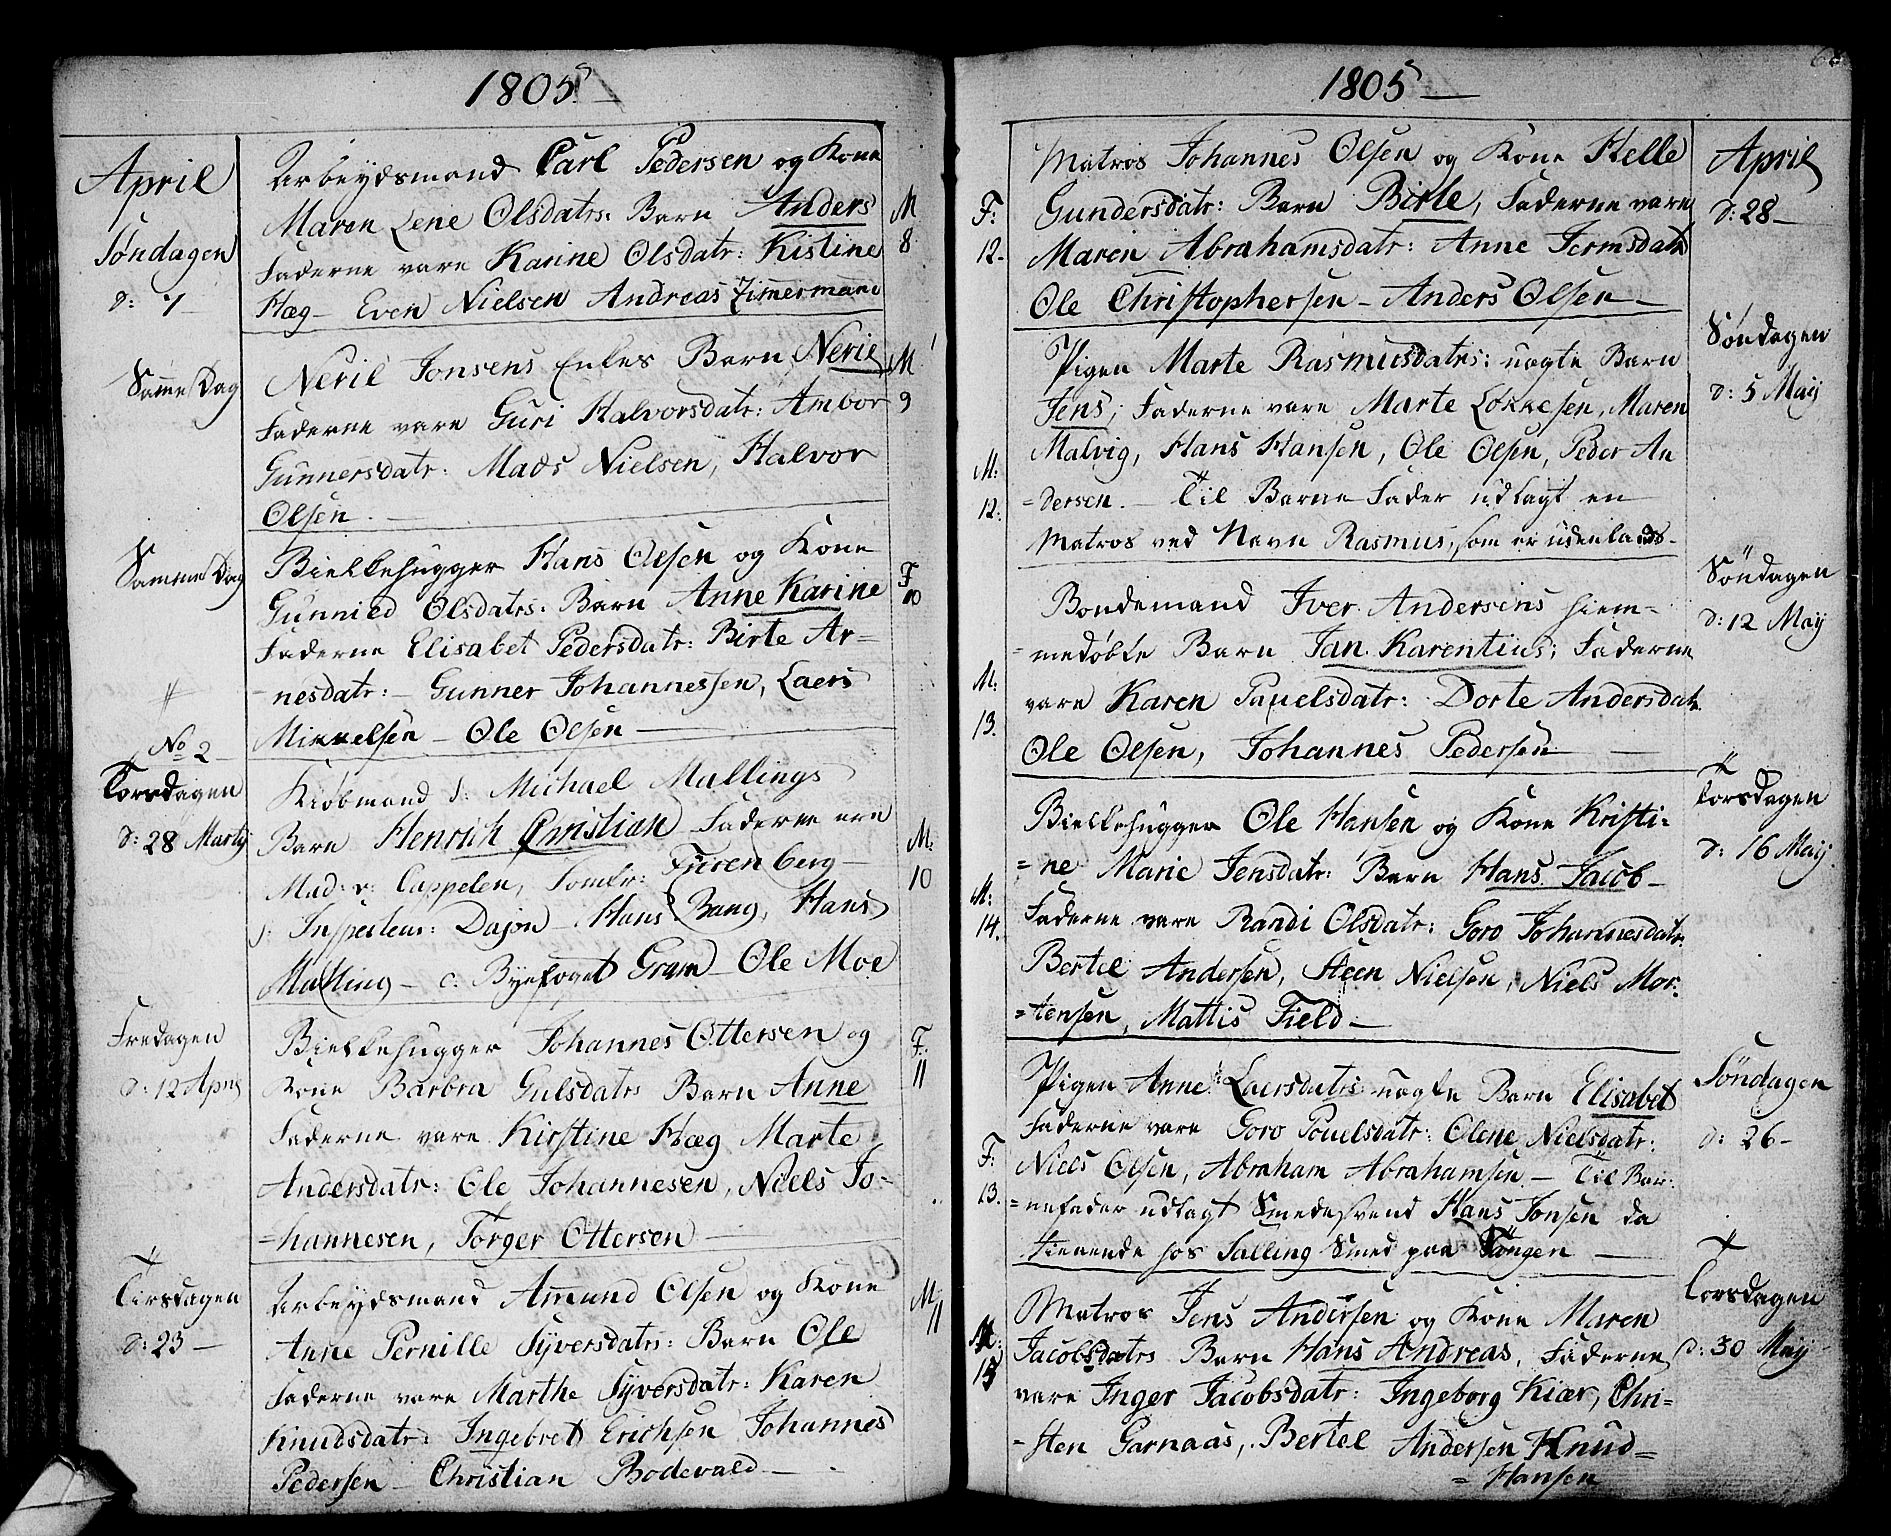 1805
April
Søndagen
d: 7
Arbeydsmand Carl Pedersen og Kone
Maren Lene Olsdatr: Barn Anders
Faderne vare Karine Olsdatr: Kistine
Hæg – Even Nielsen Andreas Zimmermann
M
8
Samme Dag
Neril Jonsens Enkes Barn Neriel
Faderne vare Guri Halvorsdatr: Ambor
Gunnersdatr: Mads Nielsen, Halvor
Olsen –
M
9
Samme Dag
Bielkehugger Hans Olsen og Kone
Gunnied Olsdatrs: Barn Anne Karine
Faderne Elisabet Pedersdatr: Birte Ar=
nesdatr: – Gunner Johannessen, Laers
Mikkelsen – Ole Olsen –
F
10
No 2
Torsdagen
d: 28 Martij
Kiøbmand S: Michael Mallings
Barn Henrich Christian Faderne ere
Mad: v: Cappelen, Jomfr: Fürenberg –
S: Inspecteur: Dajon – Hans Bang, Hans
Malling – C: Byefoget Gram – Ole Moe
M:
10
Fredagen
d: 12 April
Bielkehugger Johannes Ottersen og
Kone Barbra Gulsdatrs Barn Anne
Faderne vare Kirstine Hæg Marte
Andersdatr: Ole Johannesen, Niels Jo=
=hannesen, Torger Ottersen –
F:
11
Tirsdagen
d: 23 –
Arbeydsmand Amund Olsen og Kone
Anne Pernille Syversdatrs: Barn Ole
Faderne vare Marthe Syversdatr: Karen
Knudsdatr: Ingebret Erichsen Johannes
Pedersen – Christian Bodevald –
M:
11
1805 –
April
d: 28 –
Matros Johannes Olsen og Kone Helle
Gundersdatr: Barn Birte, Faderne vare
Maren Abrahamsdatr: Anne Jermsdatr
Ole Christophersen – Anders Olsen –
F:
12.
Søndagen
d: 5 Maij
Pigen Marte Rasmusdatrs: uægte Barn
Jens; Faderne vare Marte Lökkesen, Maren
Malvig, Hans Hansen, Ole Olsen, Peder An
=dersen. – Til Barne Fader udlagt en
Matros ved Navn Rasmus, som er udenlands –
M:
12.
Søndagen
d: 12 Maij
Bondemand Iver Andersens hiem=
=medøbte Barn Jan Karentius; Faderne
vare Karen Pauelsdatr: Dorte Andersdatr.
Ole Olsen, Johannes Pedersen –
M:
13.
Torsdagen
d: 16 Maij.
Bielkehugger Ole Hansen og Kone Kristi=
=ne Marie Jensdatr: Barn Hans Jacob –
Faderne vare Randi Olsdatr: Goro Johannesdatr.
Bertel Andersen, Steen Nielsen, Niels Mor:
=tensen, Mattis Field –
M:
14.
Søndagen
d: 26 –
Pigen Anne Laersdatrs uægte Barn Elisabet
Faderne vare Goro Pouelsdatr: Olene Nielsdatr:
Niels Olsen, Abraham Abrahamsen – Til Bar:
=nefader udlagt Smedesvend Hans Jonsen da
tienende hos Salling Smed paa Tangen –
F:
13.
Torsdagen
d: 30 Maij
Matros Jens Andersen og Kone Maren
Jacobsdatrs Barn Hans Andreas, Faderne
vare Inger Jacobsdatr: Ingeborg Kiær, Chri=
=sten Garnaas, Bertel Andersen Knud=
=Hansen
M:
15